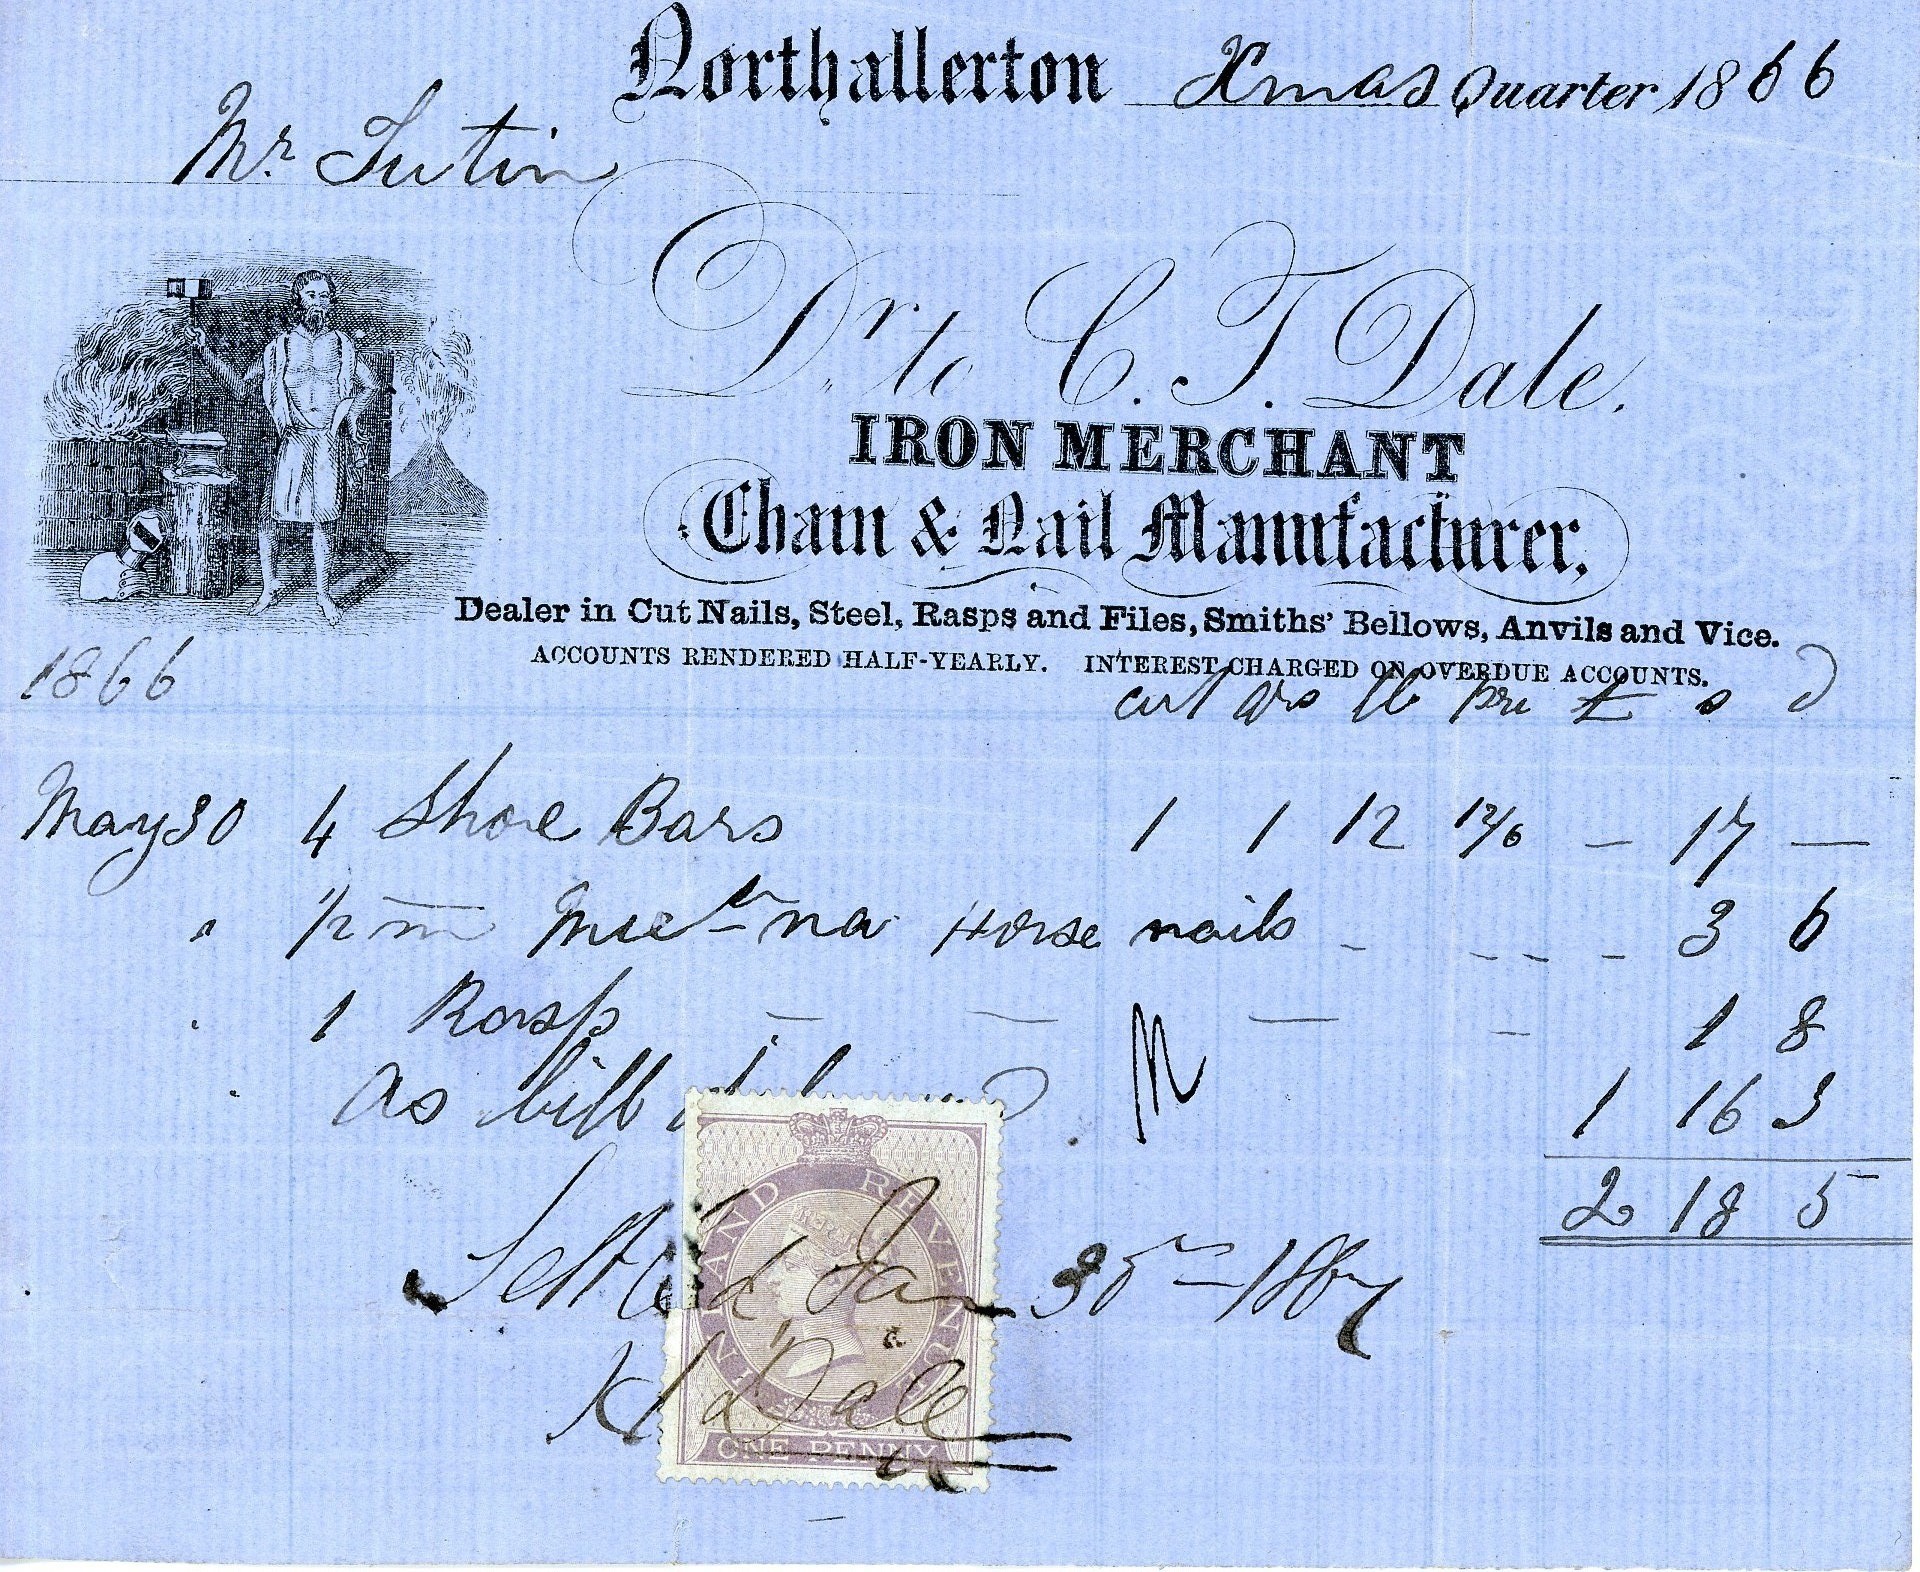 Northallerton Xmas Quarter 1866
Mr. Tutin
Dr. to C. T. Dale.
IRON MERCHANT
Chain & Nail Manufacturer.
Dealer in Cut Nails, Steel, Rasps and Files, Smiths' Bellows, Anvils and Vice.
ACCOUNTS RENDERED HALF-YEARLY. INTEREST CHARGED ON OVERDUE ACCOUNTS.
1866 cwt qrs lb £ s d
May 30 4 Shoe Bars 1 1 12 12/6 - 17 -
" 1/2 m Horse nails - - - - 3 6
" 1 Rasp - - - - 1 8
" As bill 1 16 3
2 18 5
INLAND REVENUE
Settled Jan 30th 1867
Dale
ONE PENNY